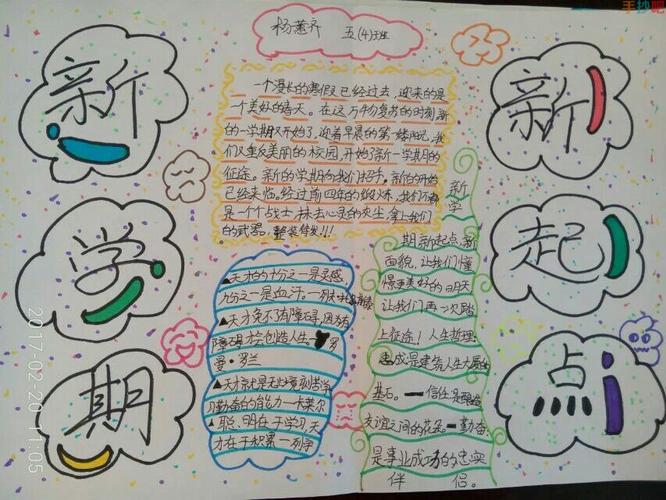 手抄吧
杨蕙齐 五(4)班
新
学
期
新
起
点
一个漫长的寒假已经过去,迎来的是
一个美好的春天。在这万物复苏的时刻新
的一学期又开始了,迎着早晨的第一缕阳光,我
们又重反美丽的校园,开始了新一学期的
征途。新的学期向我们招手。新的开始
已经来临。经过前四年的煅炼,我们不都
是一个个战士,抹去心灵的灰尘,拿上我们
的武器,整装待发!!!
▲天才的十分之一是灵感,
九分之一是血汗。—列夫·托尔斯泰
▲天才免不了有障碍,因为有
障碍才会创造人生 罗
曼·罗兰
▲天才就是无止境刻苦学
习勤奋的能力—卡莱尔
▲聪明在于学习天
才在于积累—列宁
新
学
期新起点,新
面貌,让我们懂
憬更美好的明天
让我们再一次踏
上征途!人生哲理:
忠成是建筑人生大厦的
基石。—信任是
友谊之间的花朵。—勤奋
是事业成功的忠实
伴侣。
2017-02-20 11:05